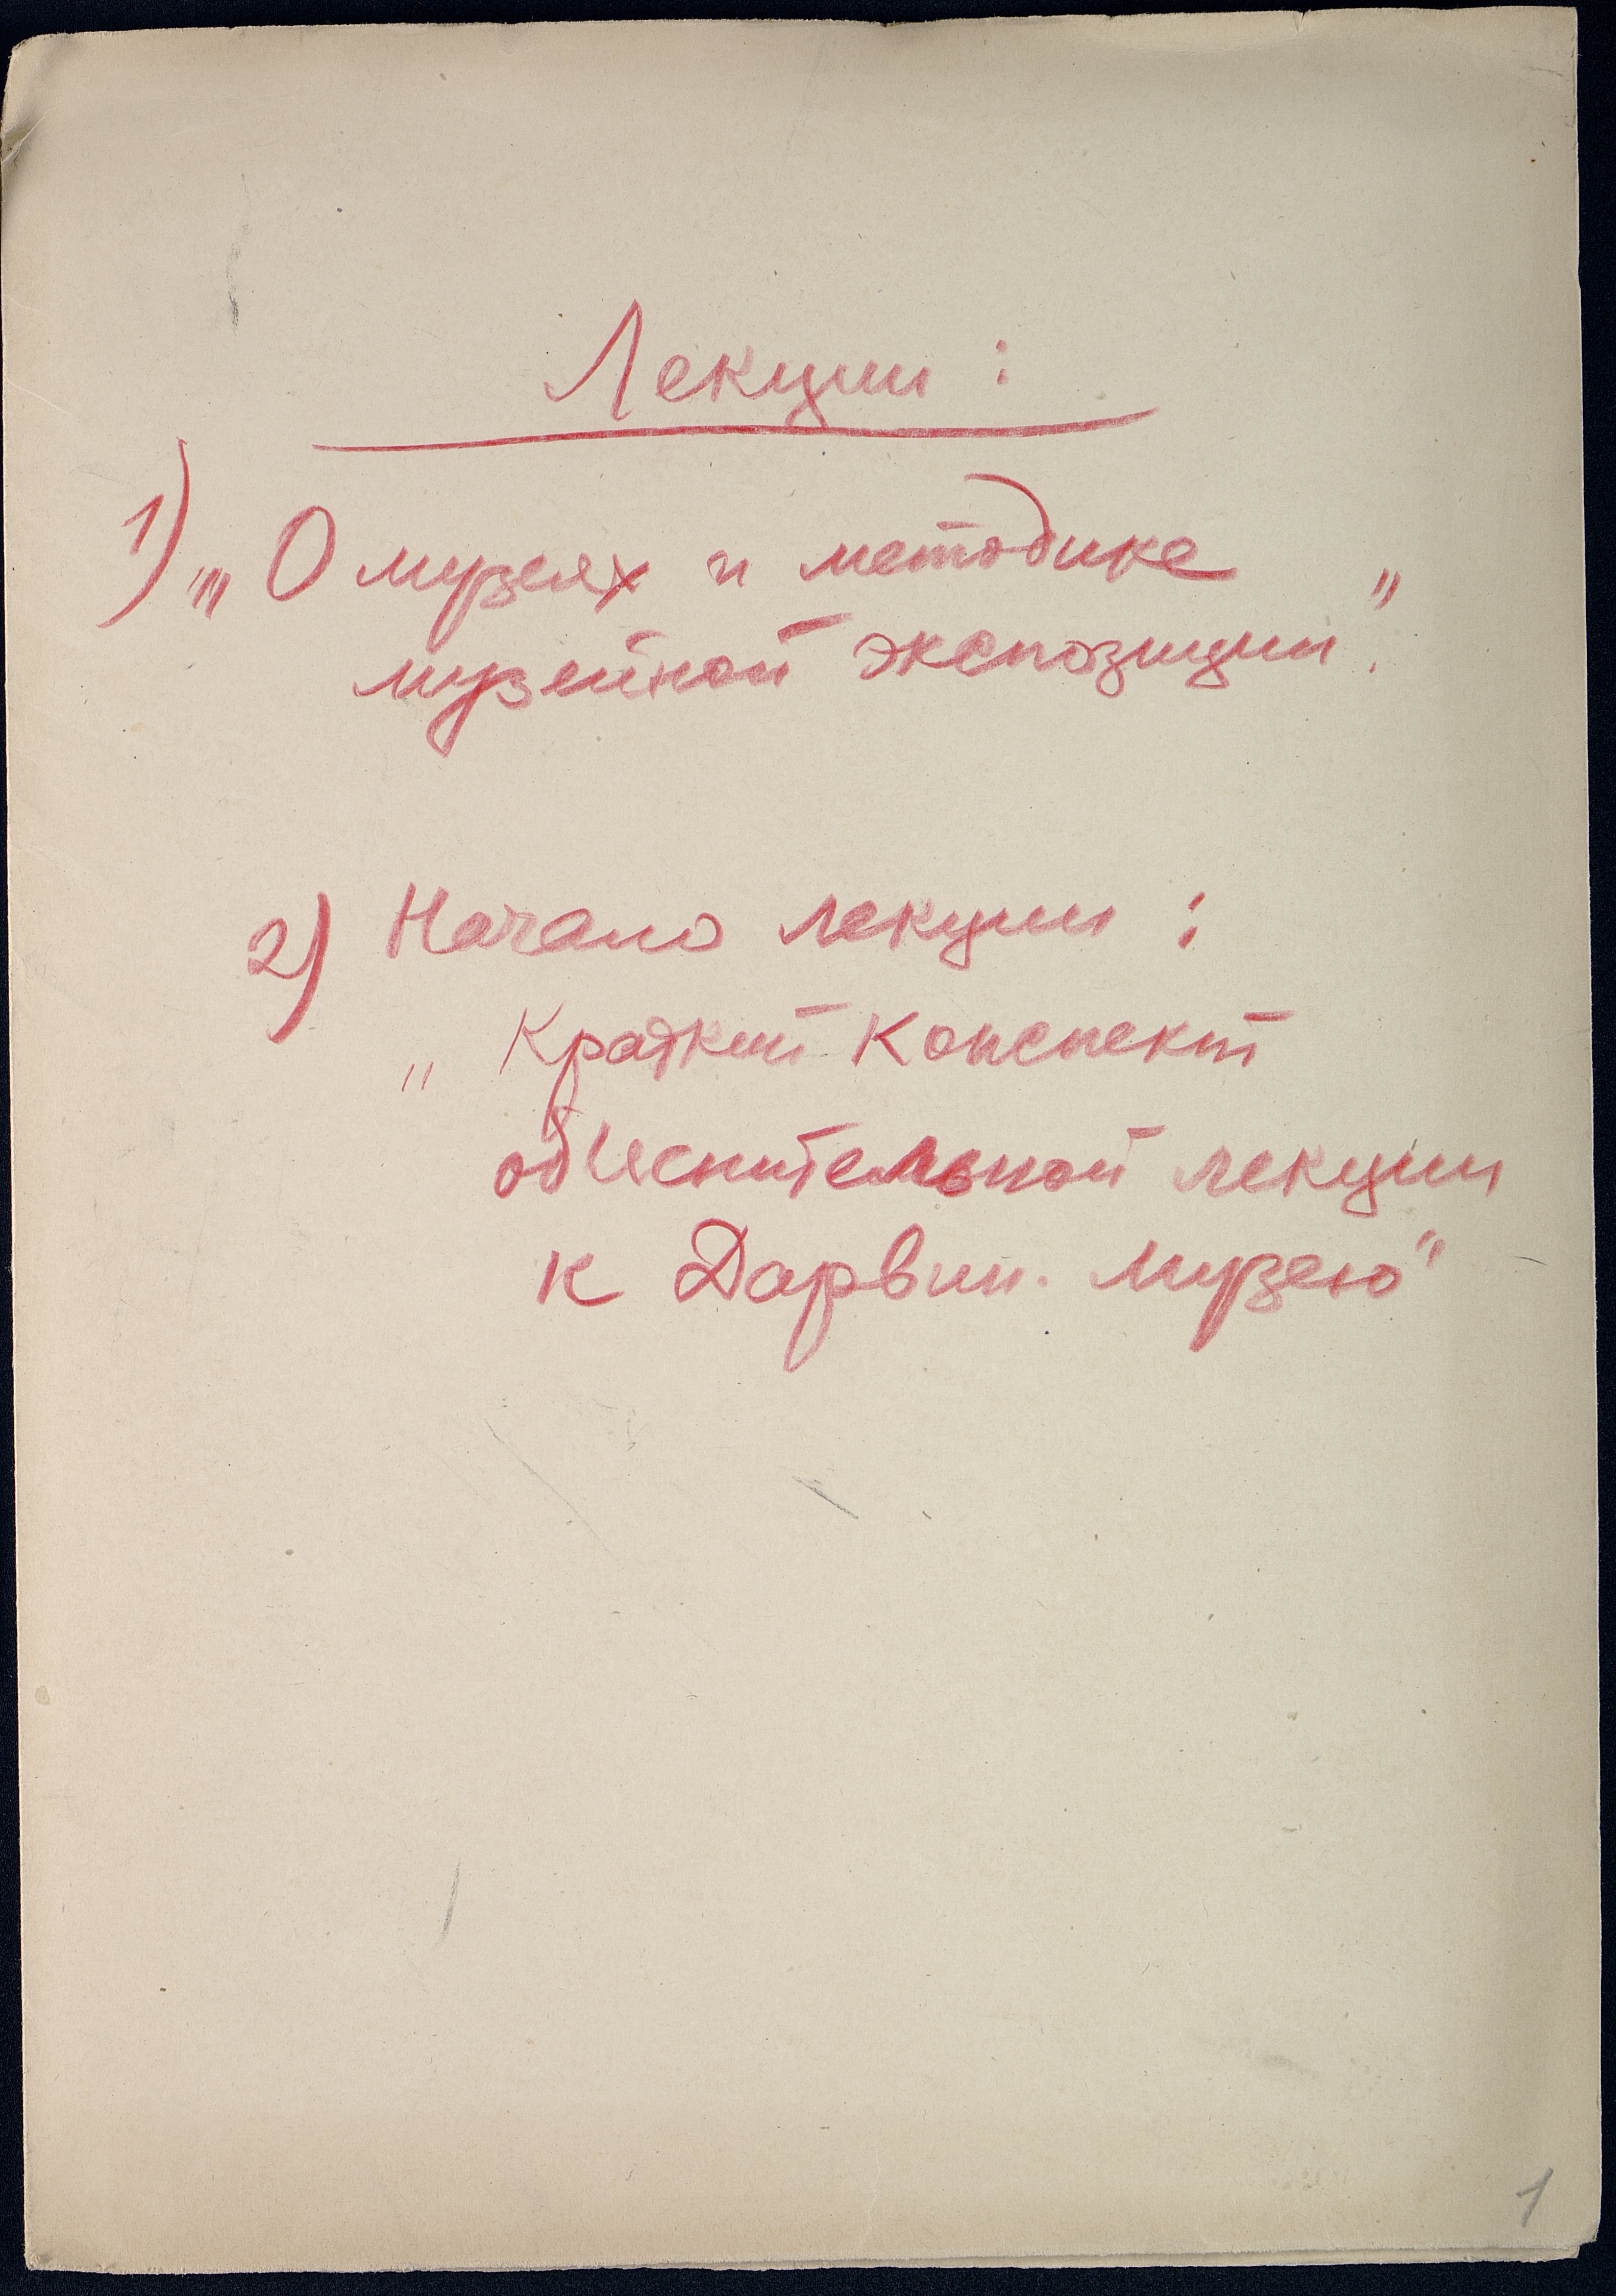 Лекции:
1) „О музеях и методике
музейной экспозиции".
2) Начало лекции:
„Краткий Конспект
об'яснительной лекции
к Дарвин. Музею"
1